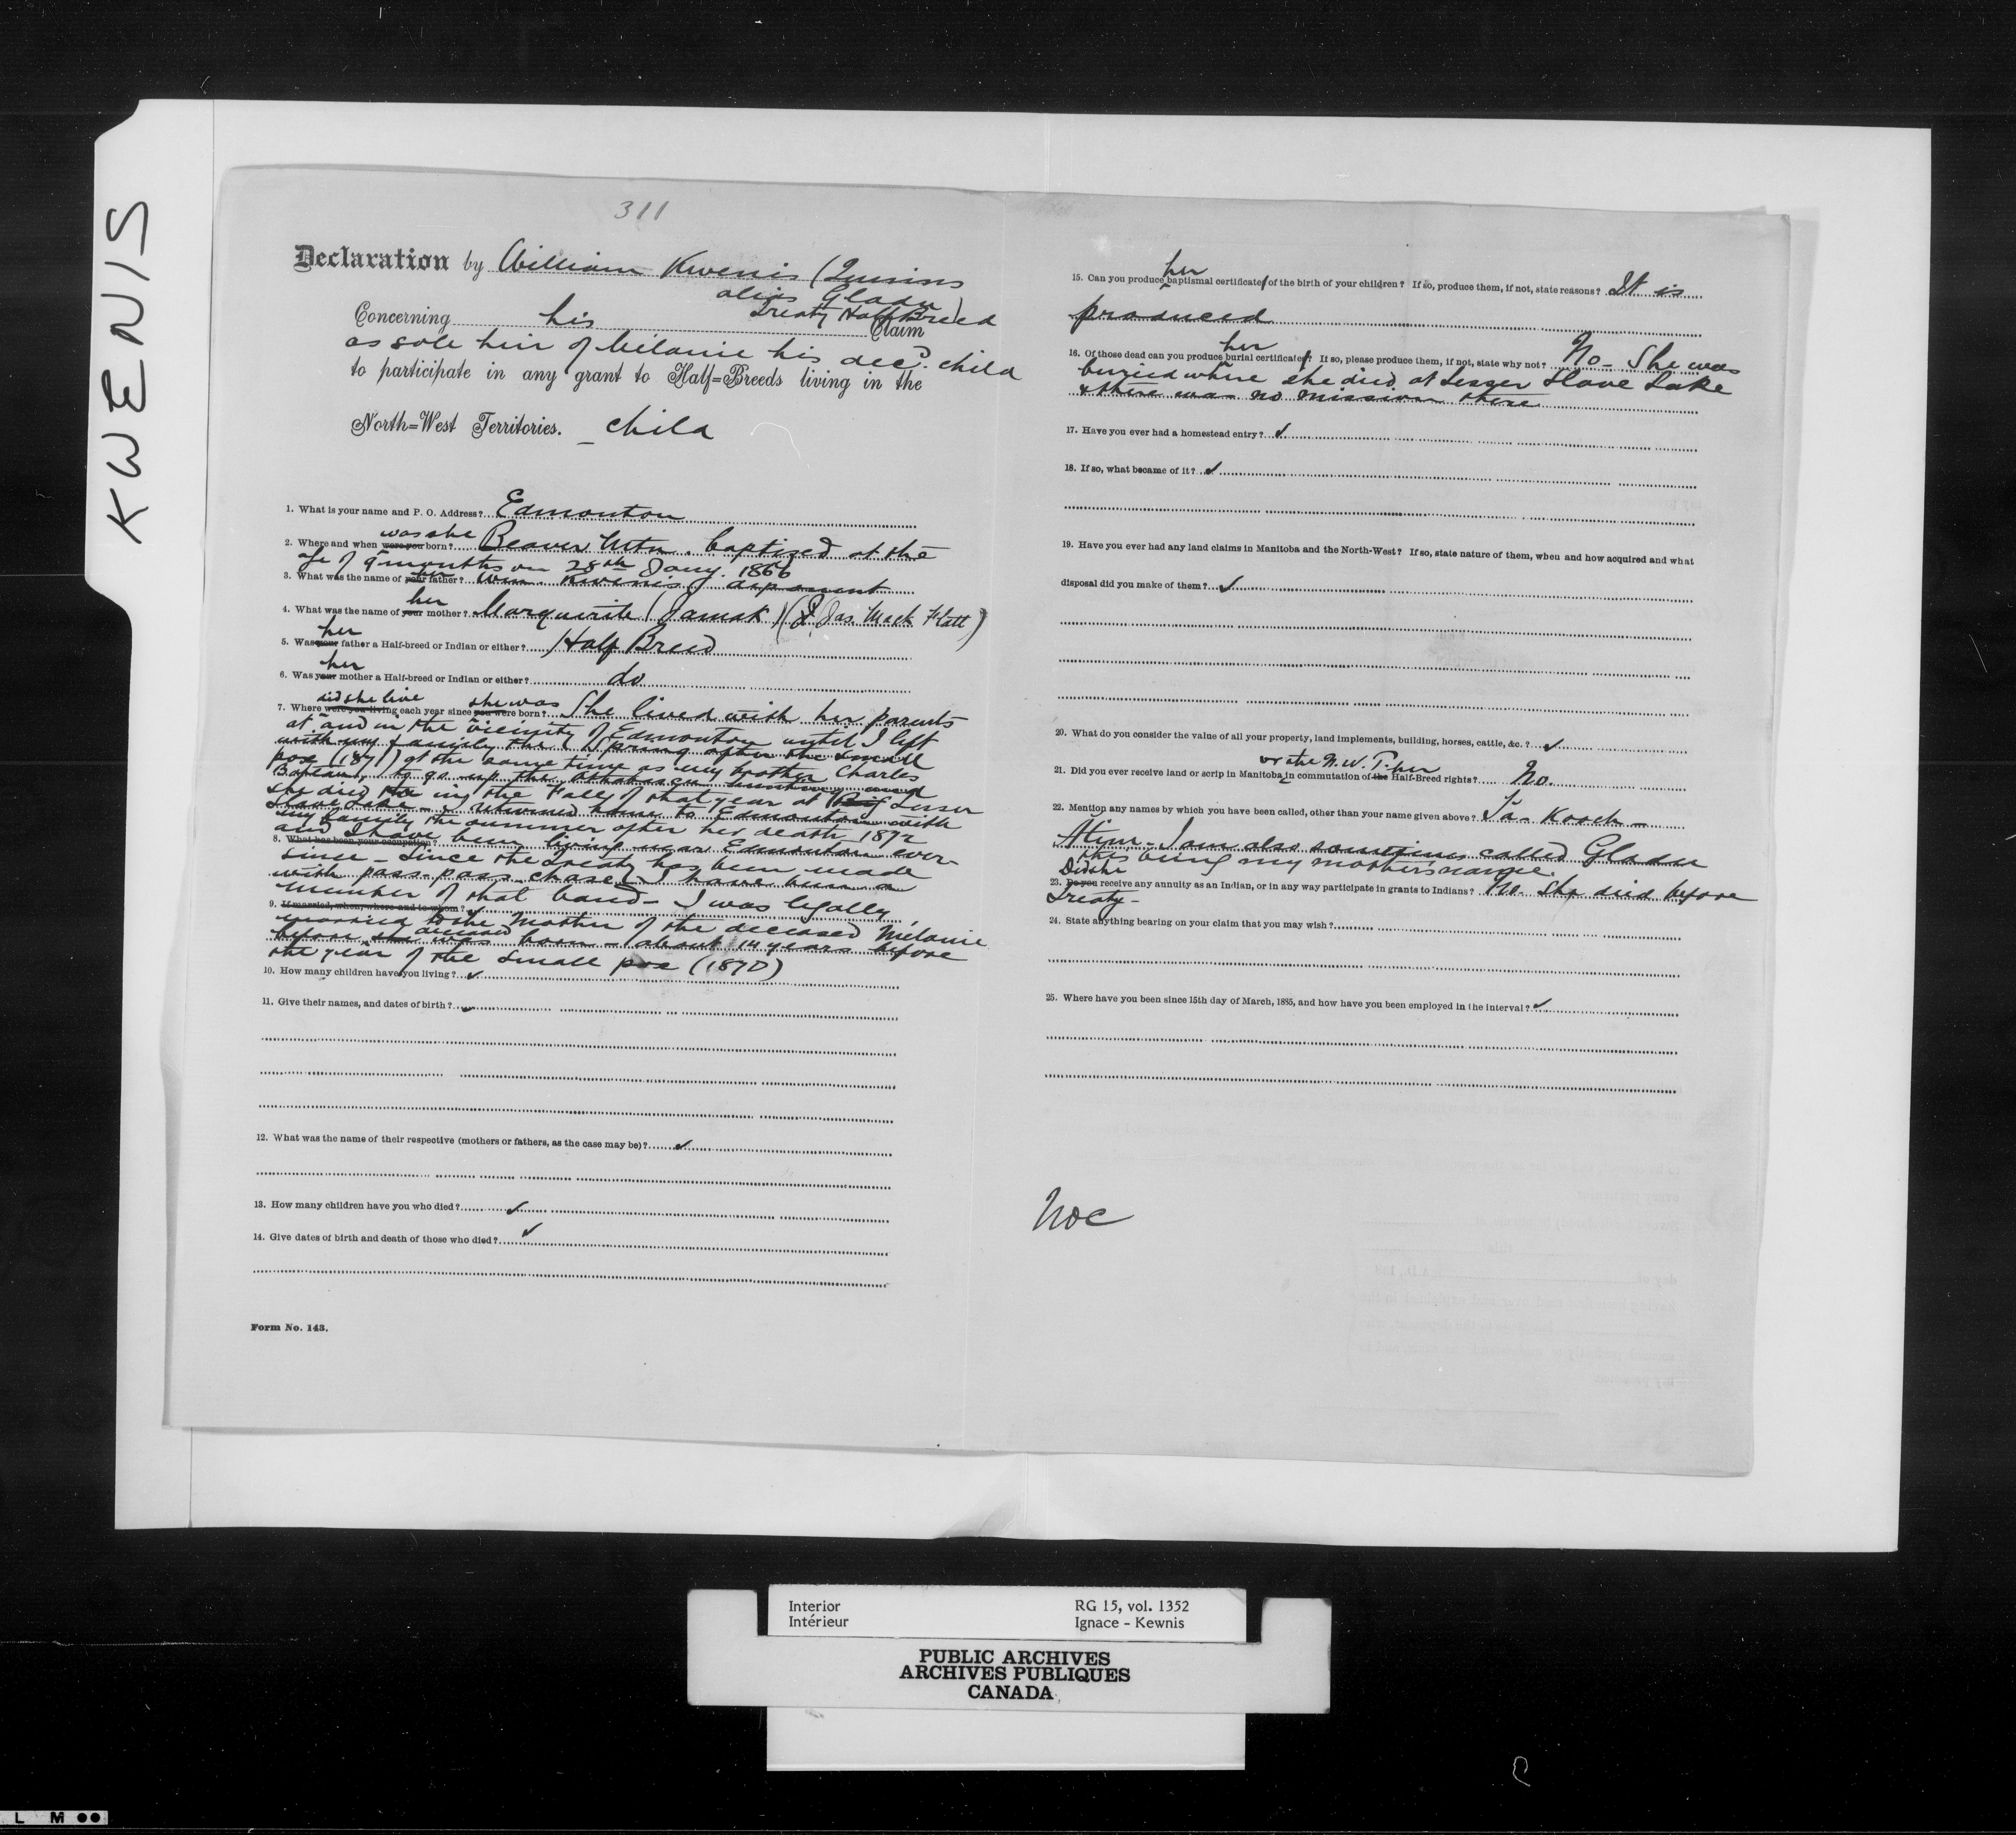 KWENIS
311
Declaration by William Kwenis (Quinns
alias Gladu)
Treaty Half Breed
Concerning his Claim
as sole heir of Mélanie his decd. child
to participate in any grant to Half=Breeds living in the
North=West Territories. – child
1. What is your name and P. O. Address? Edmonton
was she
2. Where and when were you born? Beaver Mtn. baptized at the
age of 9 months on 28th Jany. 1866
her
3. What was the name of your father? Wm. Kwenis deponent
her
4. What was the name of your mother? Marguerite (Jamak) (Jas. Mack Flatt)
her
5. Was your father a Half-breed or Indian or either? Half Breed
her
6. Was your mother a Half-breed or Indian or either? do
did she live she was
7. Where were you living each year since you were born? She lived with her parents
at and in the vicinity of Edmonton until I left
with my family the Spring after the small
pox (1871) at the same time as my brother Charles
Baptiste, to go up the Athabasca hunting and
she died in the Fall of that year at Big Lesser
Slave Lake – I returned home to Edmonton with
my family the summer after her death 1872
and I have been living near Edmonton ever
8. What has been your occupation?
since – Since the Treaty has been made
with pass-pass-chase I have been a
member of that band – I was legally
9. If married, when, where and to whom?
married to the mother of the deceased Mélanie
before she deceased was born – about 14 years before
the year of the small pox (1870)
10. How many children have you living? ✓
11. Give their names, and dates of birth? ✓
12. What was the name of their respective (mothers or fathers, as the case may be)? ✓
13. How many children have you who died? ✓
14. Give dates of birth and death of those who died? ✓
Form No. 143.
her
15. Can you produce baptismal certificates of the birth of your children? If so, produce them, if not, state reasons? It is
produced
her
16. Of those dead can you produce burial certificates? If so, please produce them, if not, state why not? No – She was
buried where she died at Lesser Slave Lake
& there was no mission there
17. Have you ever had a homestead entry? ✓
18. If so, what became of it? ✓
19. Have you ever had any land claims in Manitoba and the North-West? If so, state nature of them, when and how acquired and what
disposal did you make of them? ✓
20. What do you consider the value of all your property, land implements, building, horses, cattle, &c.? ✓
or the N.W.T. her
21. Did you ever receive land or scrip in Manitoba in commutation of the Half-Breed rights? No.
22. Mention any names by which you have been called, other than your name given above? Ta-Kooch-
Atim – I am also sometimes called Gladu
this being my mother's name.
Did she
23. Do you receive any annuity as an Indian, or in any way participate in grants to Indians? No. She died before
Treaty –
24. State anything bearing on your claim that you may wish?
25. Where have you been since 15th day of March, 1885, and how have you been employed in the interval? ✓
Interior
Intérieur
RG 15, vol. 1352
Ignace - Kewnis
PUBLIC ARCHIVES
ARCHIVES PUBLIQUES
CANADA
L M